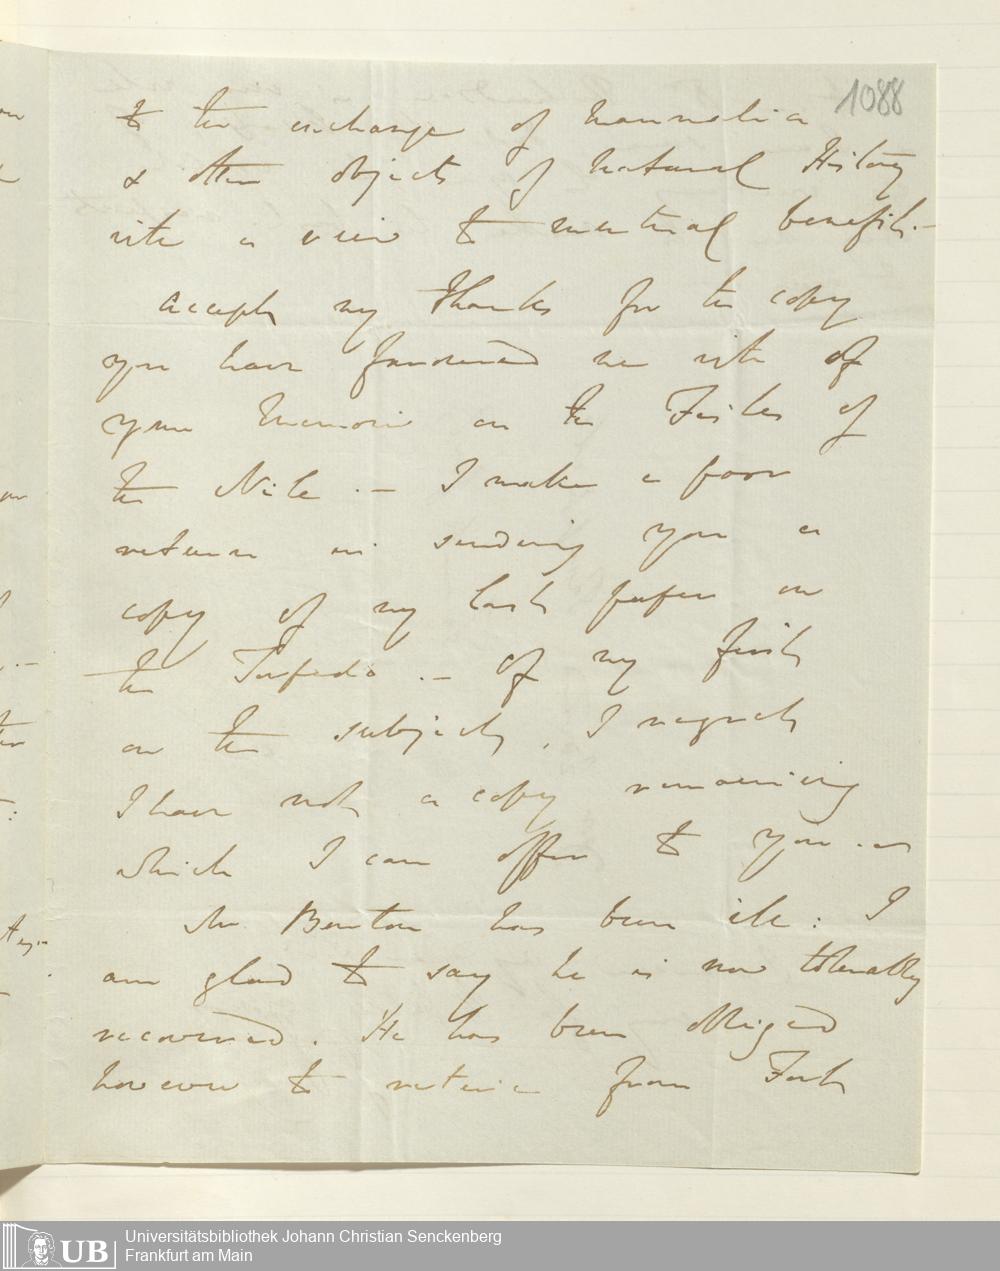 1088
to the exchange of Mammalia
& other objects of Natural History
with a view to mutual benefit.—
Accept my thanks for the copy
you have favoured me with of
your Memoir on the Fishes of
the Nile.— I make a poor
return in sending you a
copy of my last paper on
the Torpedo.— Of my first
on the subject, I regret
I have not a copy remaining
which I can offer to you.—
Mr Benton has been ill: I
am glad to say he is now tolerably
recovered. He has been obliged
however to retire from Fort
Universitätsbibliothek Johann Christian Senckenberg
Frankfurt am Main
UB